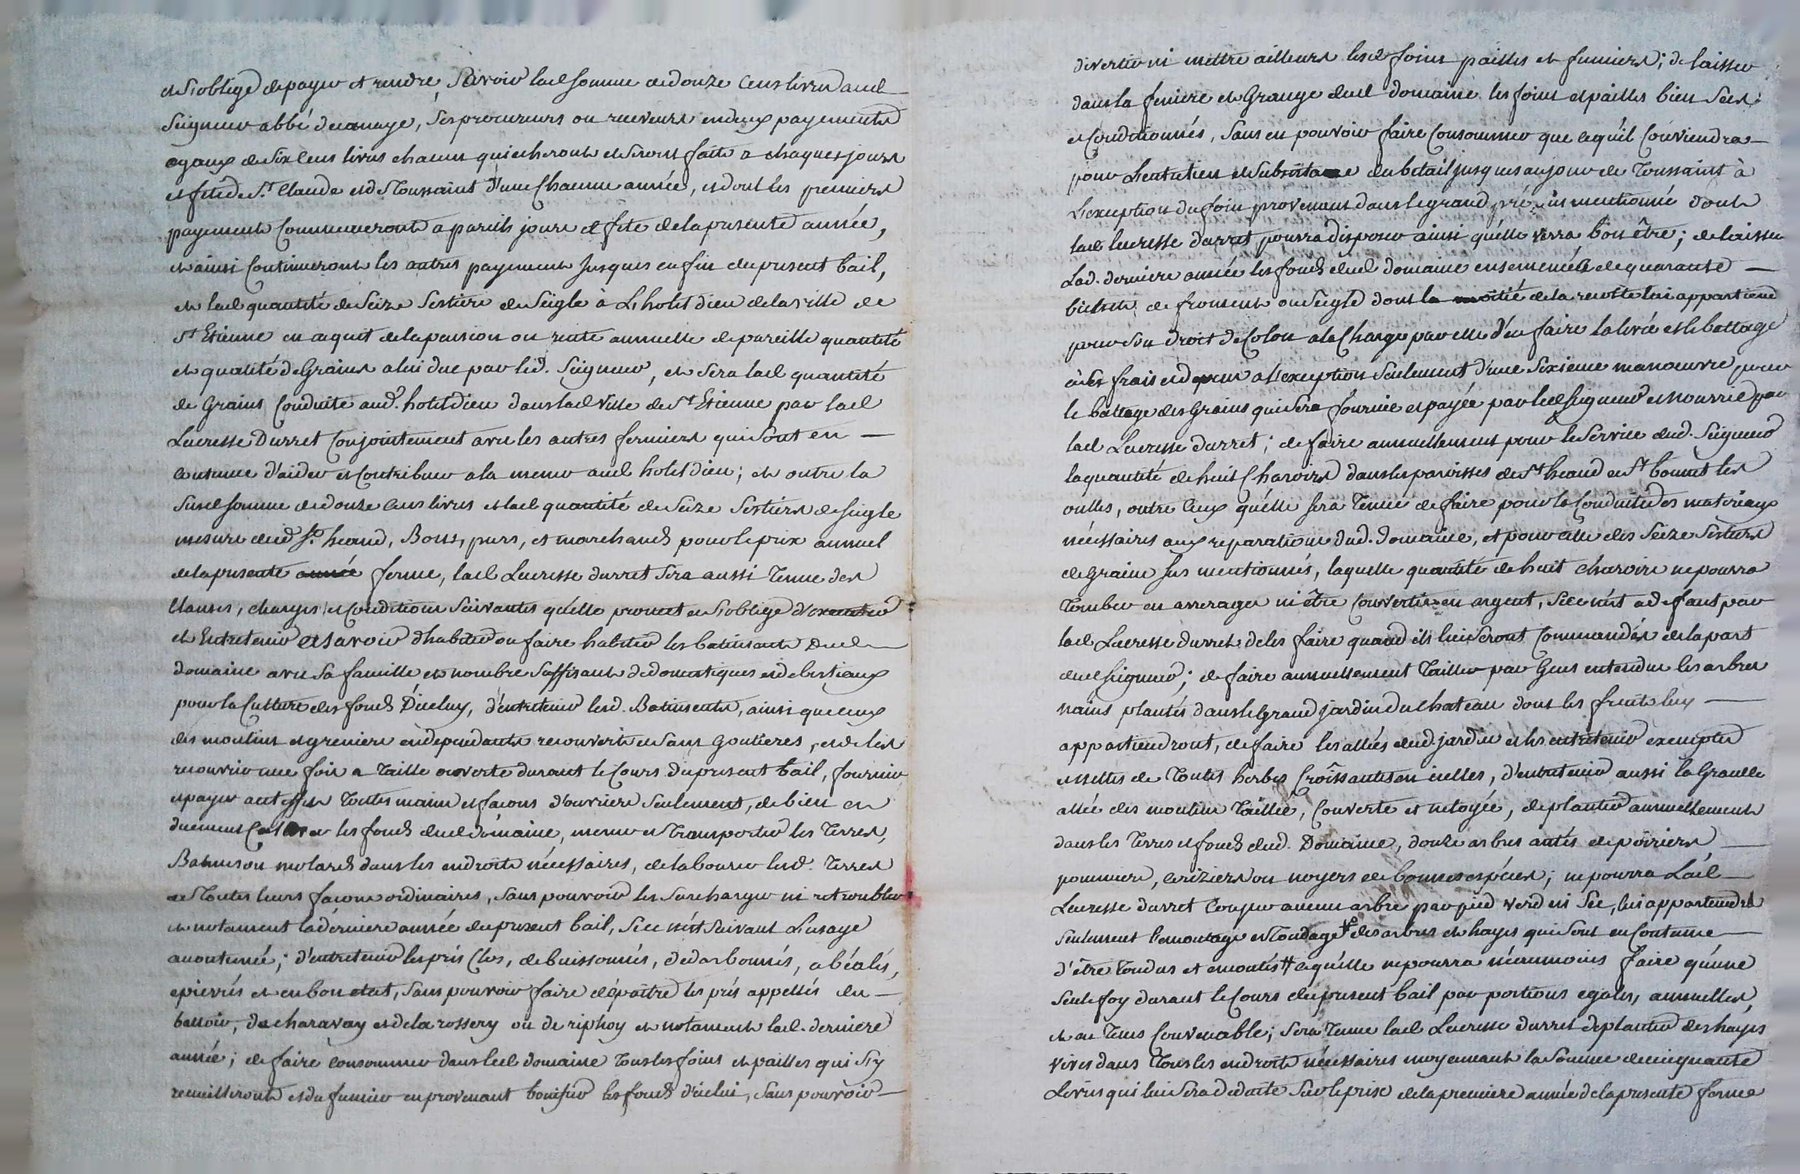 et s'oblige de payer et rendre, savoir lad. somme de douze cens livres aud.
Seigneur abbé, ses procureurs ou receveurs en deux payements
egaux de six cens livres chacun qui echeront et seront faits a chaques jours
et fete de St. Claude et de Toussaint d'une chacune année, et dont les premiers
payements commenceront a pareils jours et fete de la presente année,
et ainsi continueront les autres payements jusques en fin du present bail,
et lad. quantité de seize sestiers de seigle à L'hotel dieu de la ville de
St. Etienne en acquit de la pension ou rente annuelle de pareille quantité
et qualité de Grains a lui due par led. Seigneur, et sera lad. quantité
de Grains conduite aud. hotel dieu dans lad. ville de St. Etienne par lad.
Lucresse Durret conjointement avec les autres fermiers qui sont en
coutume d'aider et contribuer a la mener aud. hotel dieu; et outre la
susd. somme de douze cens livres et lad. quantité de seize sestiers de seigle
mesure dud. St. heand, Bons, purs, et marchands pour le prix annuel
de la presente année ferme, lad. Lucresse durret sera aussi tenue des
clauses, charges et conditions suivantes qu'elle promet et s'oblige d'executer
et Entretenir et savoir d'habiter ou faire habiter les batiments dud.
domaine avec sa famille et nombre suffisant de domestiques et de bestiaux
pour la culture des fonds d'iceluy, d'entretenir lesd. Batiments, ainsi que ceux
des moulins et greniers en dependants recouverts et sans goutieres, et de les
recouvrir une fois a taille ouverte durant le cours du present bail, fournir
et payer a cet effet toutes mains et façons d'ouvriers seulement, de bien et
duement les fonds dud. domaine, mener et transporter les terres,
dans les endroits nécessaires, de labourer lesd. terres
de toutes leurs façons ordinaires, sans pouvoir les surcharger ni retroubler
et notament la derniere année du present bail, si ce n'est suivant L'usage
acoutumé; d'entretenir les prés clos, debuissonnés, abéalés,
epierrés et en bon etat, sans pouvoir faire depaître les prés appellés du
battoir, de charavay et de la rossery ou de riphoy et notament lad. derniere
année; de faire consommer dans led. domaine tous les foins et pailles qui s'y
recuilliront et du fumier en provenant bonifier les fonds d'icelui, sans pouvoir
divertir ni mettre ailleurs lesd. foins pailles et fumiers; de laisser
dans la feniere et Grange dud. domaine les foins et pailles bien secs
et conditionnés, sans en pouvoir faire consommer que ce qu'il conviendra
pour L'entretien et subsistance du betail jusques au jour de Toussaint à
L'exception du foin provenant dans le grand pré sus mentionné dont
lad. lucresse durret pourra disposer ainsi qu'elle verra bon être; de laisser
Lad. derniere année les fonds dud. domaine ensemencés de quarante
bichets de froment ou seigle dont la moitié de la recolte lui appartiend.
pour son droit de colon a la charge par elle d'en faire la levée et le battage
à ses frais et depens a l'exception seulement d'une sixieme manœuvre pour
le battage des Grains qui sera fournie et payée par led. seigneur et nourrie par
lad. Lucresse durret; de faire annuellement pour le service dud. Seigneur
la quantité de huit charois dans les paroisses de St. heand et St. bonnet les
oulles, outre ceux qu'elle sera tenue de faire pour la conduite des materiaux
nécessaires aux reparations dud. domaine, et pour celle des seize sestiers
de grains sus mentionnés, laquelle quantité de huit charois ne pourra
tomber en arrerages ni être convertie en argent, si ce n'est a defaut par
lad. Lucresse durret de les faire quand ils lui seront commandés de la part
dud. seigneur; de faire annuellement tailler par gens entendus les arbres
nains plantés dans le Grand jardin du chateau dont les fruits luy
appartiendront, de faire les allées dud. jardin et les entretenir exemptes
et nettes de toutes herbes croîssantes en icelles, d'entretenir aussi la Grande
allée des moulins taillée, couverte et netoyée, de planter annuellement
dans les terres et fonds dud. Domaine, douze arbres antés de poiriers
pommiers, cerisiers ou noyers de bonnes espéces; ne pourra Lad.
Lucresse durret couper aucun arbre par pied verd ni sec, lui appartiendra
seulement l'emontage et tondage des arbres et hayes qui sont en coutume
d'être tondus et emontés # ce qu'elle ne pourra néanmoins faire qu'une
seule foy durant le cours du present bail par portions egales, annuelles,
et au tems convenable; sera tenue lad. Lucresse durret de planter des hayes
vives dans tous les endroits nécessaires moyennant la somme de cinquante
Livres qui lui sera deduite sur le prix de la premiere année de la presente ferme